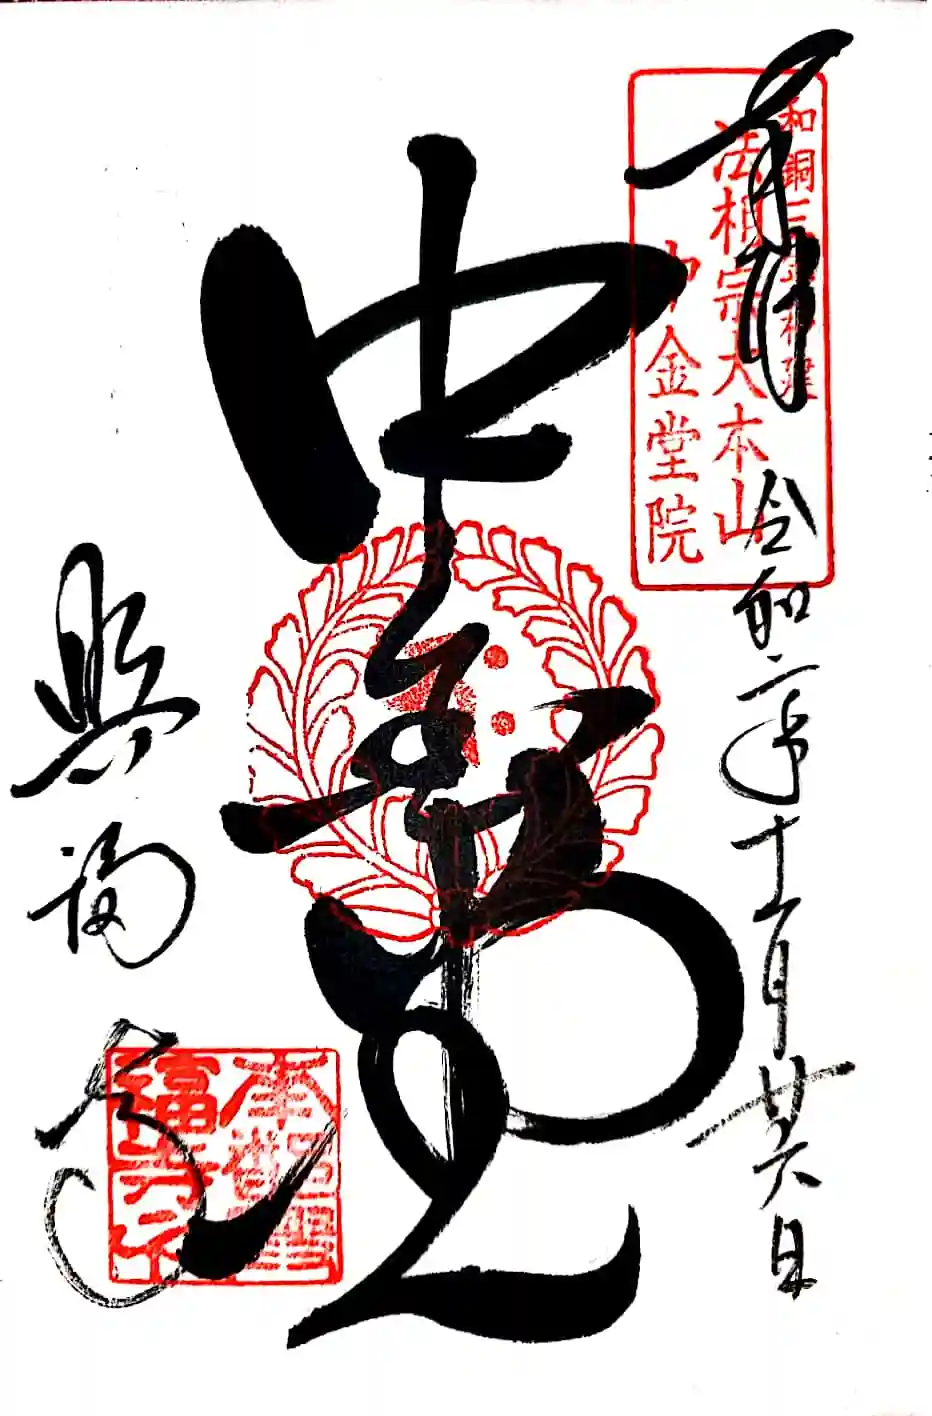 奉拝
和銅三年創建
法相宗大本山
中金堂院
令和二年十一月廿六日
中金堂
興福寺